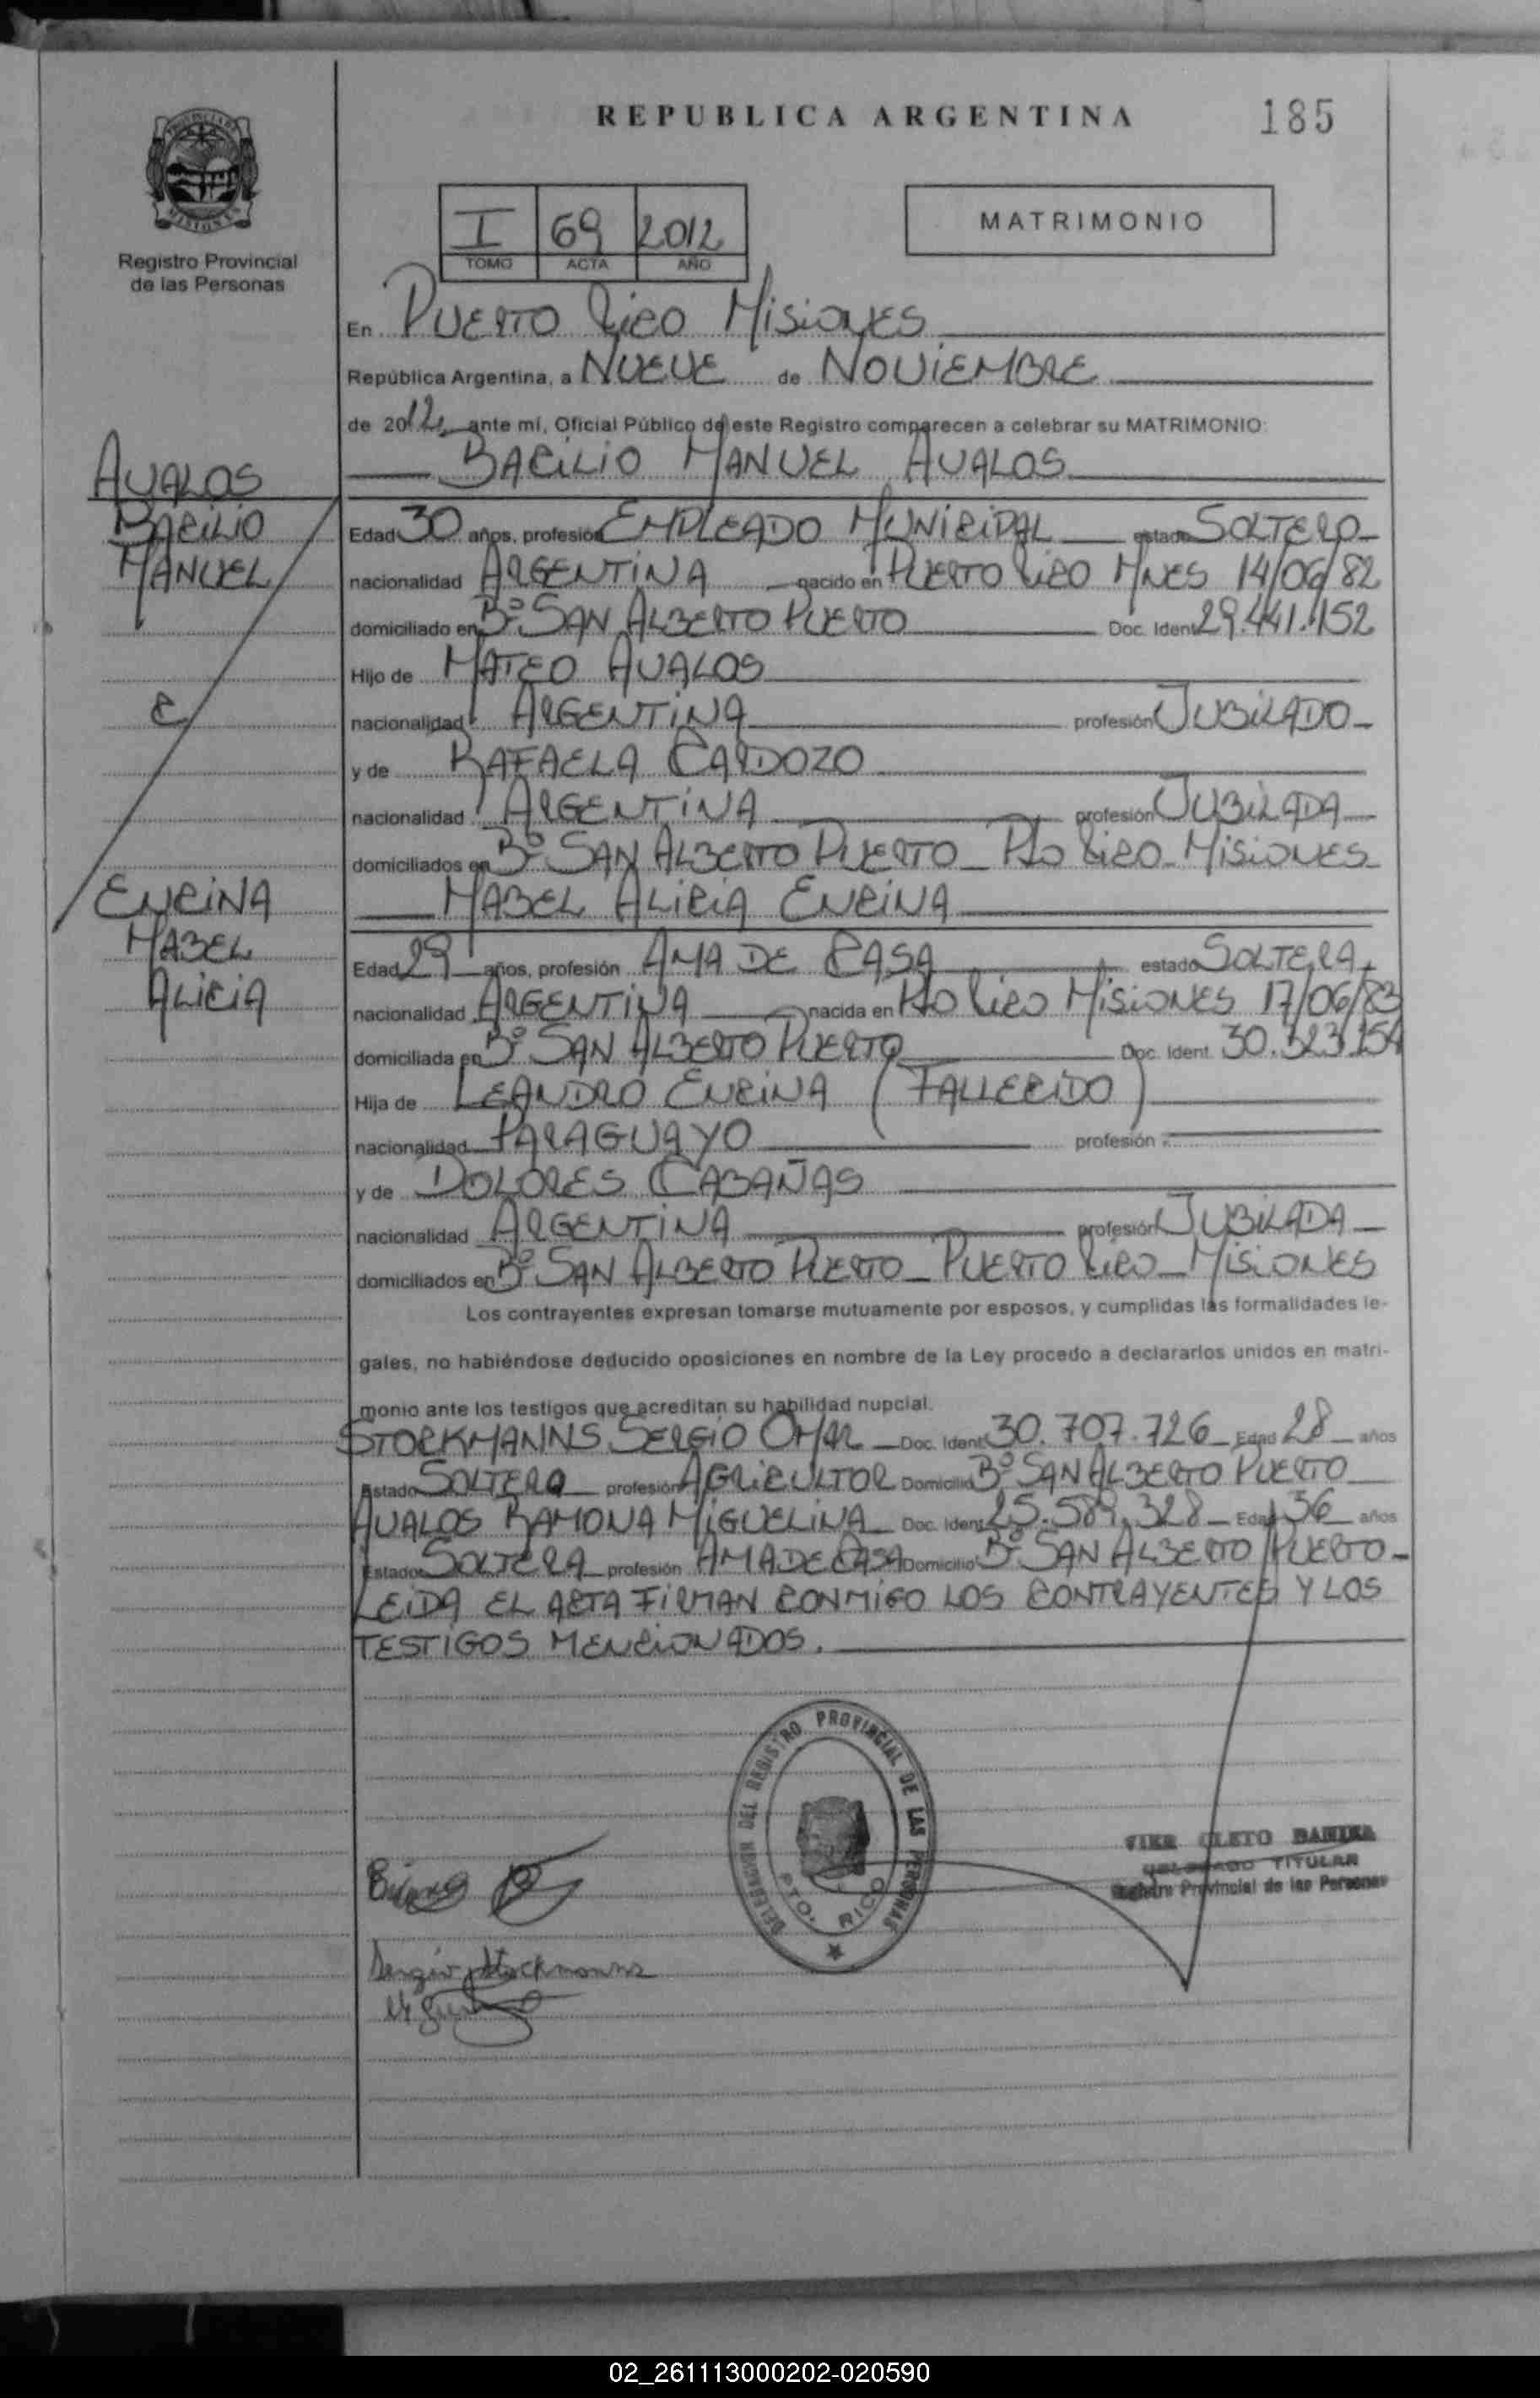 REPUBLICA ARGENTINA
185
PROVINCIA DE MISIONES
Registro Provincial
de las Personas
I 69 2012
TOMO ACTA AÑO
MATRIMONIO
En PUERTO RICO MISIONES
República Argentina, a NUEVE de NOVIEMBRE
de 2012 ante mí, Oficial Público de este Registro comparecen a celebrar su MATRIMONIO:
BACILIO MANUEL AVALOS
AVALOS
BACILIO
MANUEL
Edad 30 años, profesión EMPLEADO MUNICIPAL estado SOLTERO
nacionalidad ARGENTINA nacido en PUERTO RICO MNES 14/06/82
domiciliado en Bº SAN ALBERTO PUERTO Doc. Ident. 29.441.152
Hijo de MATEO AVALOS
nacionalidad ARGENTINA profesión JUBILADO
y de RAFAELA CARDOZO
nacionalidad ARGENTINA profesión JUBILADA
domiciliados en Bº SAN ALBERTO PUERTO PTO RICO MISIONES
MABEL ALICIA ENCINA
ENCINA
MABEL
ALICIA
Edad 29 años, profesión AMA DE CASA estado SOLTERA
nacionalidad ARGENTINA nacida en PTO RICO MISIONES 17/06/83
domiciliada en Bº SAN ALBERTO PUERTO Doc. Ident. 30.323.154
Hija de LEANDRO ENCINA (FALLECIDO)
nacionalidad PARAGUAYO profesión
y de DOLORES CABAÑAS
nacionalidad ARGENTINA profesión JUBILADA
domiciliados en Bº SAN ALBERTO PUERTO PUERTO RICO MISIONES
Los contrayentes expresan tomarse mutuamente por esposos, y cumplidas las formalidades le-
gales, no habiéndose deducido oposiciones en nombre de la Ley procedo a declararlos unidos en matri-
monio ante los testigos que acreditan su habilidad nupcial.
STOCKMANNS SERGIO OMAR Doc. Ident. 30.707.726 Edad 28 años
Estado SOLTERO profesión AGRICULTOR Domicilio Bº SAN ALBERTO PUERTO
AVALOS RAMONA MIGUELINA Doc. Ident. 25.589.328 Edad 36 años
Estado SOLTERA profesión AMA DE CASA Domicilio Bº SAN ALBERTO PUERTO
LEIDA EL ACTA FIRMAN CONMIGO LOS CONTRAYENTES Y LOS
TESTIGOS MENCIONADOS.
DELEGACION DEL REGISTRO PROVINCIAL DE LAS PERSONAS
PTO. RICO
CLETO
DELEGADO TITULAR
Registro Provincial de las Personas
Sergio Stockmanns
02_261113000202-020590